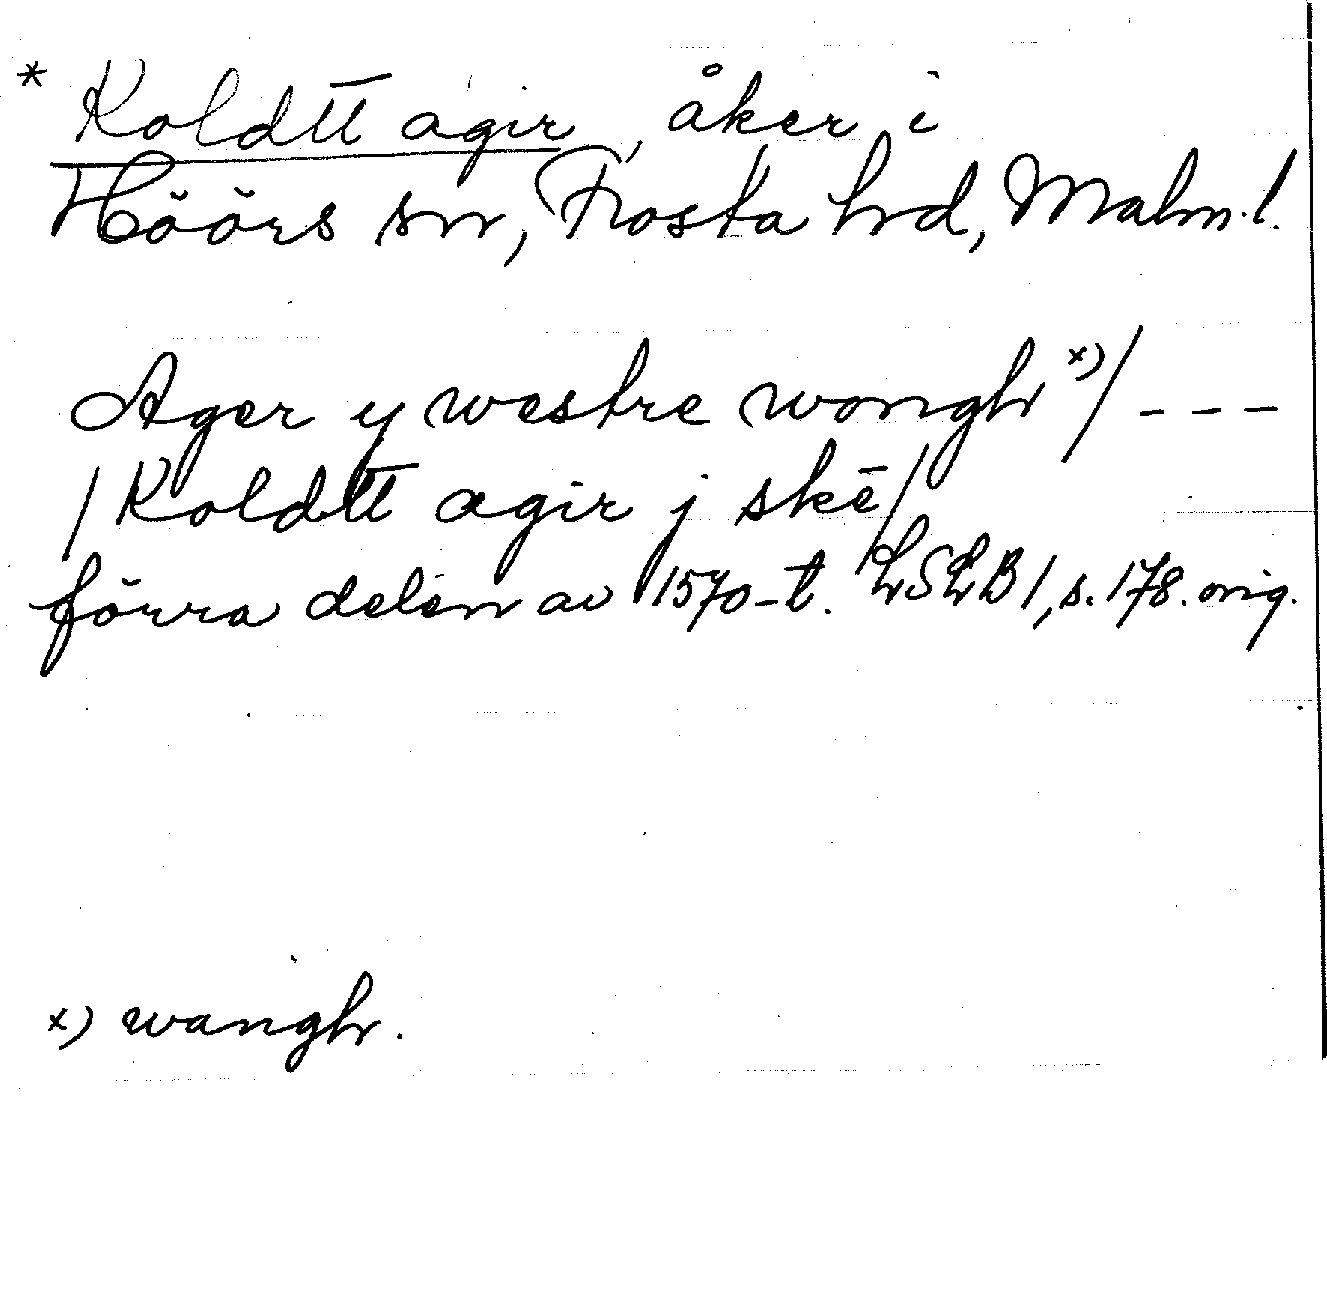 * Koldtt agir, åker i
Höörs sn, Frosta hrd, Malm. l.
Ager y westre wongh x)/ - - -
/ Koldtt agir j skē/
förra delen av 1570-t. LSLB 1, s. 178. orig.
x) wangh.